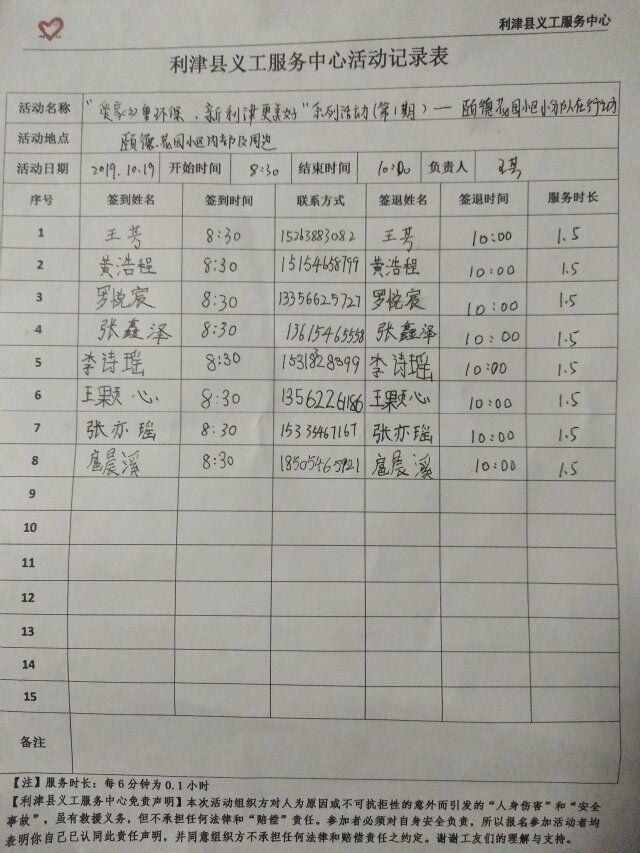 利津县义工服务中心
利津县义工服务中心活动记录表
活动名称 "爱家乡重环保、新利津更美好"系列活动(第1期)— 颐德花园小区小分队在行动
活动地点 颐德花园小区内部及周边
活动日期 2019.10.19 开始时间 8:30 结束时间 10:00 负责人 王芳
序号 签到姓名 签到时间 联系方式 签退姓名 签退时间 服务时长
1 王芳 8:30 15263883082 王芳 10:00 1.5
2 黄浩程 8:30 15154658799 黄浩程 10:00 1.5
3 罗悦宸 8:30 13356625727 罗悦宸 10:00 1.5
4 张鑫泽 8:30 13615465558 张鑫泽 10:00 1.5
5 李诗瑶 8:30 李诗瑶 10:00 1.5
6 王颗心 8:30 13562226186 王颗心 10:00 1.5
7 张亦瑶 8:30 15335467167 张亦瑶 10:00 1.5
8 扈晨溪 8:30 18505465921 扈晨溪 10:00 1.5
9
10
11
12
13
14
15
备注
【注】服务时长:每6分钟为0.1小时
【利津县义工服务中心免责声明】本次活动组织方对人为原因或不可抗拒性的意外而引发的"人身伤害"和"安全
事故",虽有救援义务,但不承担任何法律和"赔偿"责任。参加者必须对自身安全负责,所以报名参加活动者均
表明你自己已认同此责任声明,并同意组织方不承担任何法律和赔偿责任之约定。谢谢工友们的理解与支持。